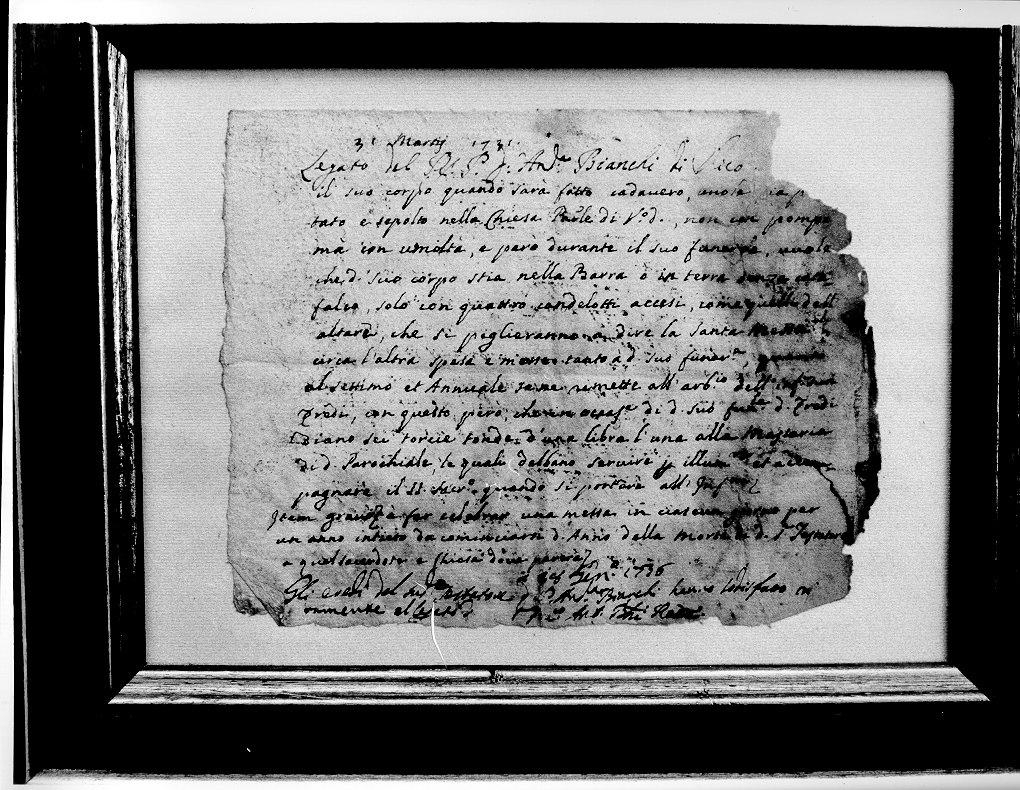 31 Martij 1731
Legato del R. P. Andª Bianchi di Vico
il suo corpo quando sarà fatto cadavero, vuole sia
tato e sepolto nella Chiesa Parle di Vod., non con pompe
mà con umoltà, e però durante il suo funerale, vuole
che d. suo corpo stia nella Barra ò in terra senza cata
falco, solo con quattro candelotti accesi, come quelli dell
altare, che si piglieranno a dire la Santa Messa
circa l'altra spesa e messe tanto à d. suo funerᵉ, quanto
al settimo et Annuale se ne rimette all' arbio dell'
Eredi, con questo però, che in di d. suo d. Eredi
diano sei torcie tonde d'una libra l'una alla
di d. Parochiale le quali debbano servire p illumʳ et accom
pagnare il SS. Sacrº quando si portarà all' Infermi
Item gravò à far celebrar una messa in ciascun giorno per
un anno intiero da cominciarsi d. Anno della morte di d. S. Testatore
a qual sacerdote e Chiesa dove parerà
1736
Gli eredi del Testatore Bianchi hanno sodisfato